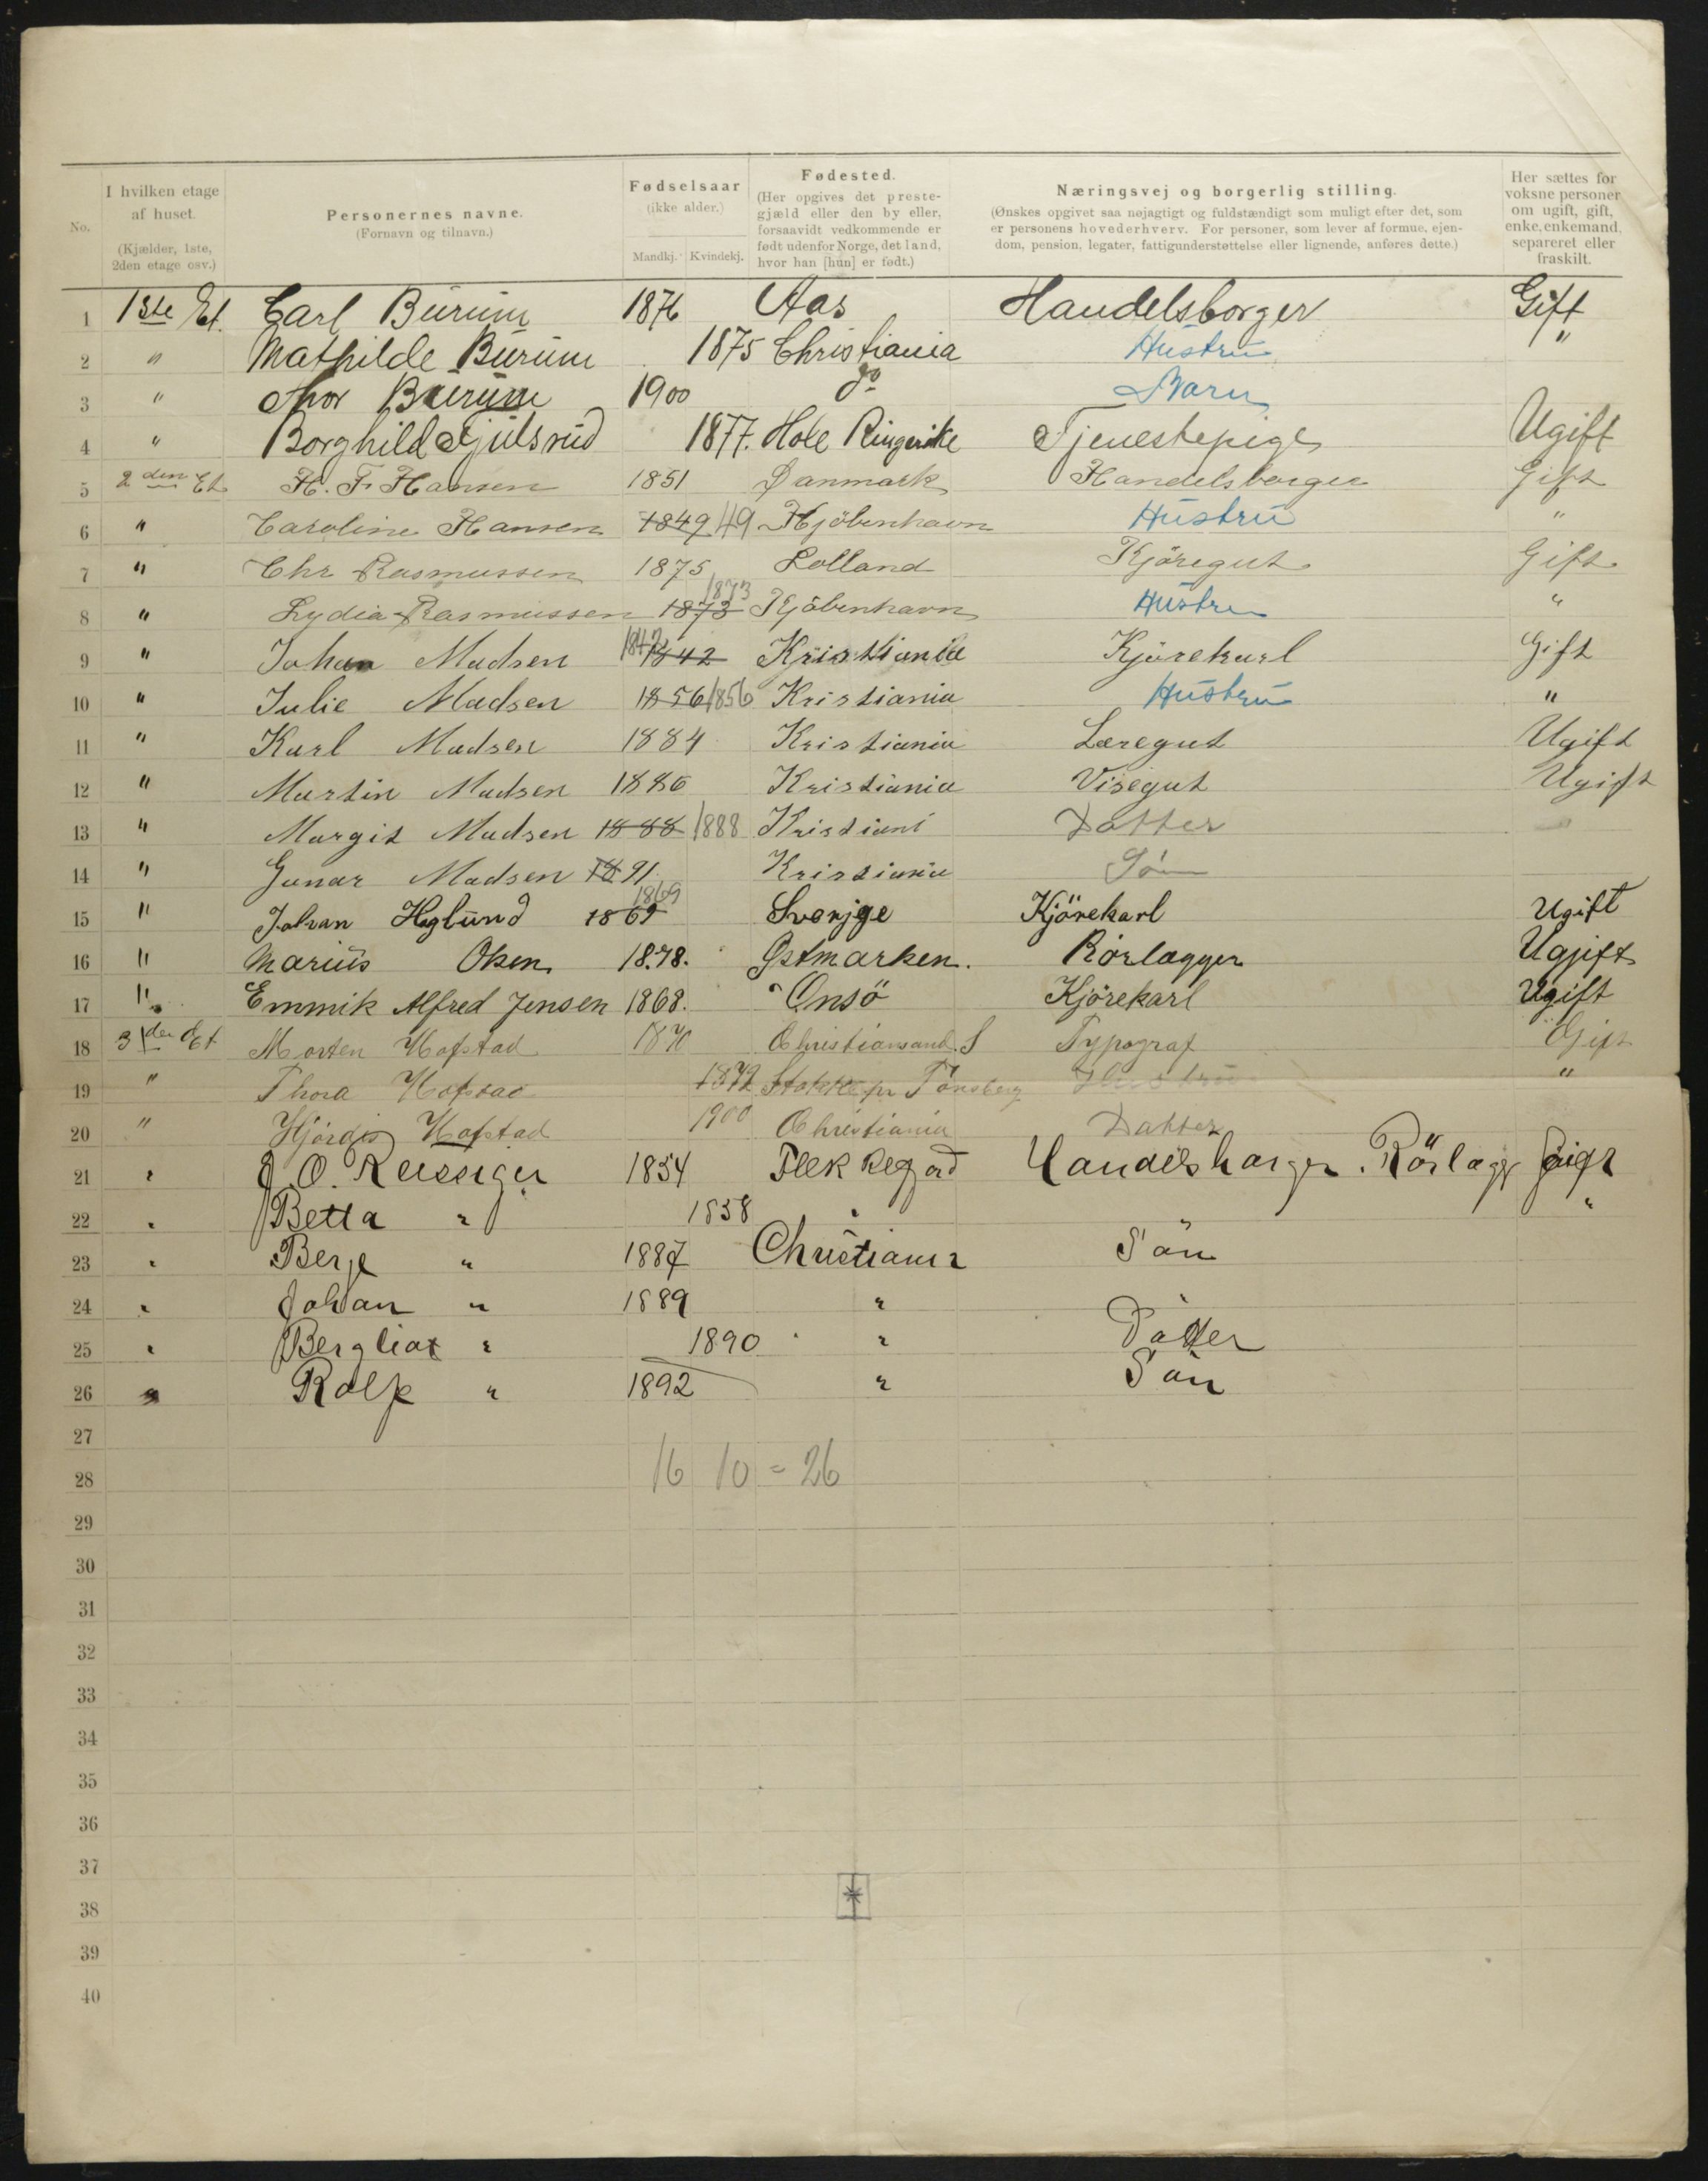 No.
I hvilken etage af huset. (Kjælder, 1ste, 2den etage osv.)
Personernes navne. (Fornavn og tilnavn.)
Fødselsaar (ikke alder.) Mandkj. Kvindekj.
Fødested. (Her opgives det prestegjæld eller den by eller, forsaavidt vedkommende er født udenfor Norge, det land, hvor han [hun] er født.)
Næringsvej og borgerlig stilling. (Ønskes opgivet saa nøjagtigt og fuldstændigt som muligt efter det, som er personens hovederhverv. For personer, som lever af formue, ejendom, pension, legater, fattigunderstøttelse eller lignende, anføres dette.)
Her sættes for voksne personer om ugift, gift, enke, enkemand, separeret eller fraskilt.
1 1ste Et. Carl Burum 1876 Aas Handelsborger Gift
2 " Mathilde Burum 1875 Christiania Hustru "
3 " Thor Burum 1900 do Barn
4 " Borghild Gjulsrud 1877. Hole Ringerike Tjenestepige Ugift
5 2den Et H. F. Hansen 1851 Danmark Handelsborger Gift
6 " Caroline Hansen 1849 49 Kjöbenhavn Hustru "
7 " Chr Rasmussen 1875 Lolland Kjöregut Gift
8 " Lydia Rasmussen 1873 1873 Kjöbenhavn Hustru "
9 " Johan Madsen 1842 1842 Kristiania Kjörekarl Gift
10 " Julie Madsen 1856 1856 Kristiania Hustru "
11 " Karl Madsen 1884 Kristiania Læregut Ugift
12 " Martin Madsen 1886 Kristiania Visegut Ugift
13 " Margit Madsen 1888 1888 Kristiani Datter
14 " Gunar Madsen 1891 Kristiania Søn
15 " Johan Høglund 1869 1869 Sverjge Kjörekarl Ugift
16 " Marius Olsen 1878. Østmarken. Rörlægger Ugift
17 " Emmik Alfred Jensen 1868. Onsö Kjörekarl Ugift
18 3den Et Morten Hofstad 1870 Christiansand. S Typograf Gift
19 " Thora Hofstad 1872 Stokke pr Tönsberg Hustru "
20 " Hjördis Hofstad 1900 Christiania Datter
21 " J. O. Reissiger 1854 Flekkefjord Handelsborger. Rörlægg Gift
22 " Betta " 1858 " "
23 " Berge " 1887 Christiania Sön
24 " Johan " 1889 "
25 " Bergliot " 1890 " Datter
26 " Rolf " 1892 " Sön
27
28 16 10 = 26
29
30
31
32
33
34
35
36
37
38
39
40